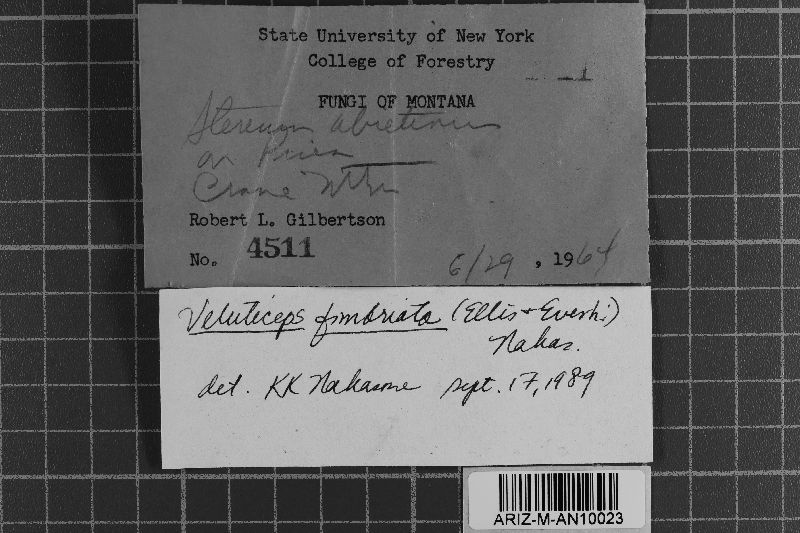 State University of New York
College of Forestry
FUNGI OF MONTANA
Stereum abietinum
on Picea
Crane Mtn
Robert L. Gilbertson
No. 4511
6/29, 1964
Veluticeps fimbriata (Ellis + Everh.)
Nakas.
det. KK Nakasone sept. 17, 1989
ARIZ-M-AN10023